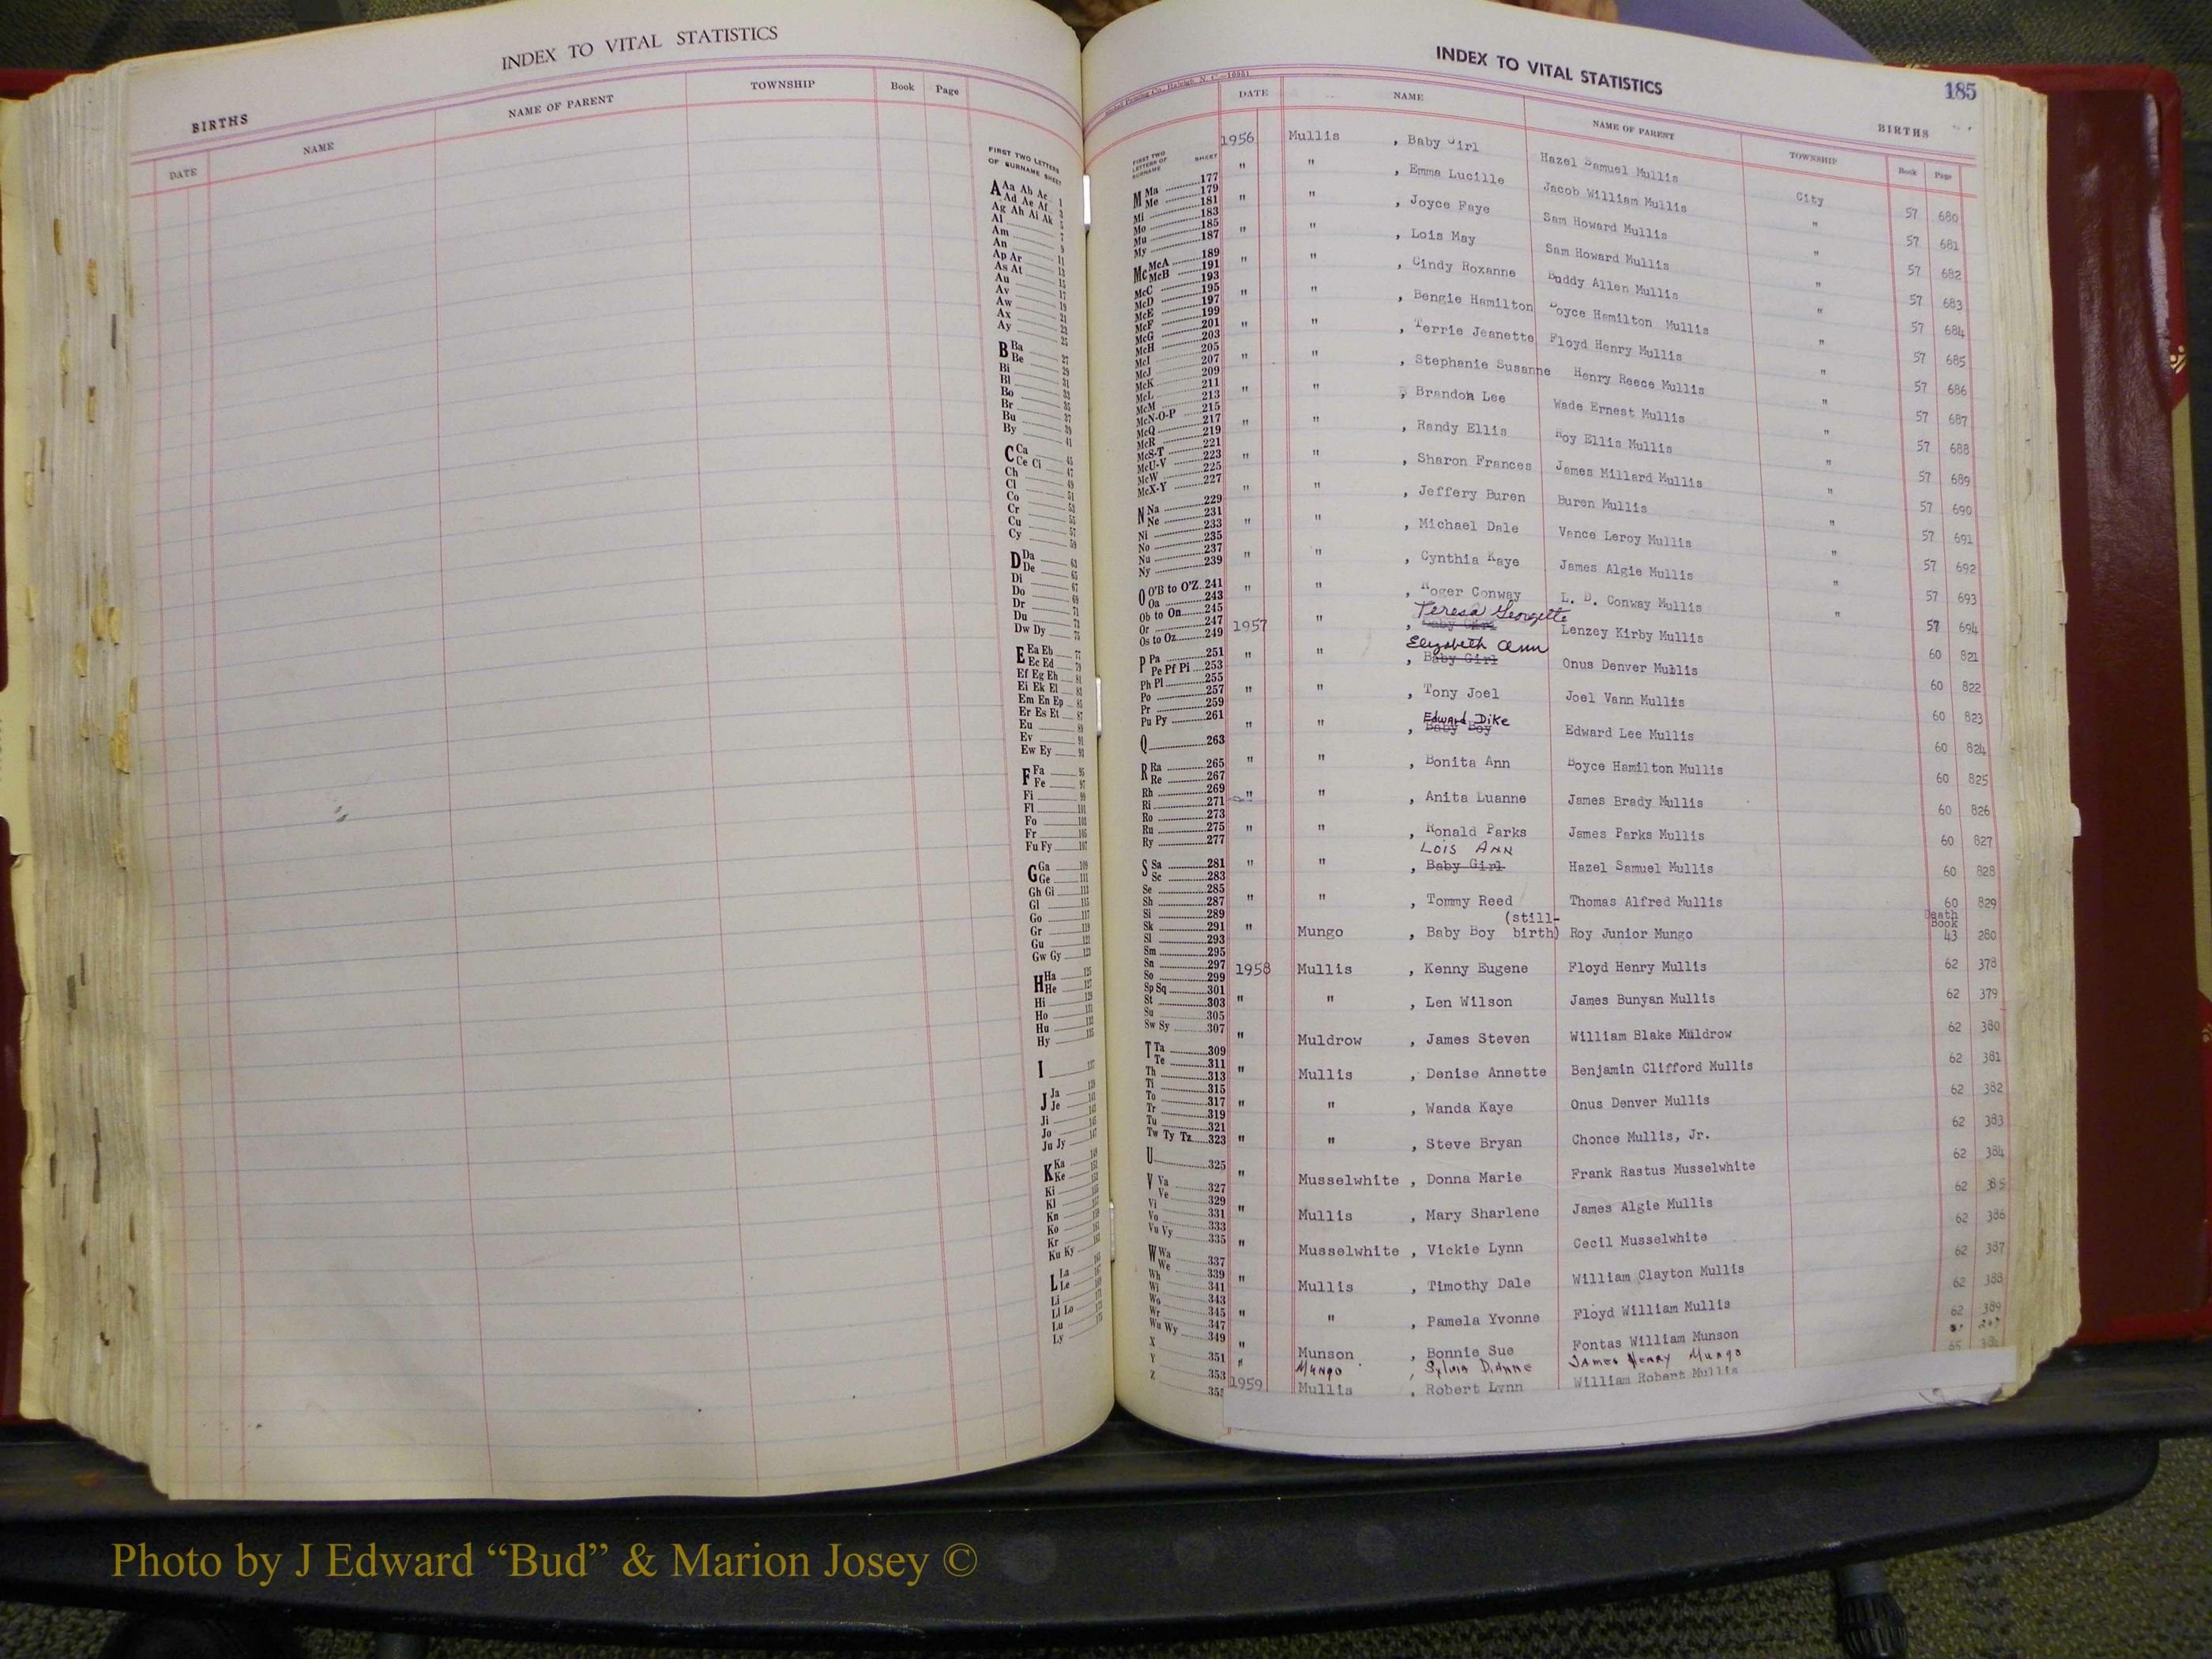 INDEX TO VITAL STATISTICS
BIRTHS
DATE NAME NAME OF PARENT TOWNSHIP Book Page
FIRST TWO LETTERS
OF SURNAME SHEET
A Aa Ab Ac 1
Ad Ae Af
Ag Ah Ai Ak
Al
Am
An
Ap Ar 11
As At 13
Au 15
Av 17
Aw 19
Ax 21
Ay
B Ba
Be
Bi
Bl
Bo
Br
Bu
By 41
C Ca 45
Ce Ci 47
Ch 49
Cl 51
Co 53
Cr 55
Cu 57
Cy 59
D Da 63
De 65
Di 67
Do 69
Dr 71
Du 73
Dw Dy 75
E Ea Eb 77
Ec Ed 79
Ef Eg Eh 81
Ei Ek El 83
Em En Ep 85
Er Es Et 87
Eu 89
Ev 91
Ew Ey 93
F Fa 95
Fe 97
Fi 99
Fl 101
Fo 103
Fr 105
Fu Fy 107
G Ga 109
Ge 111
Gh Gi 113
Gl 115
Go 117
Gr 119
Gu 121
Gw Gy 123
H Ha 125
He
Hi
Ho
Hu
Hy
I
J Ja
Je
Ji
Jo
Ju Jy
K Ka
Ke
Ki
Kl
Kn
Ko
Kr
Ku Ky
L La
Le
Li
Ll Lo
Lu
Ly
INDEX TO VITAL STATISTICS
185
BIRTHS
DATE NAME NAME OF PARENT TOWNSHIP Book Page
FIRST TWO
LETTERS OF
SURNAME SHEET
M Ma 177
Me 179
Mi 181
Mo 183
Mu 185
My 187
Mc McA 189
McB 191
McC 193
McD 195
McE 197
McF 199
McG 201
McH 203
McI 205
McJ 207
McK 209
McL 211
McM 213
McN-O-P 215
McQ 217
McR 219
McS-T 221
McU-V 223
McW 225
McX-Y 227
N Na 229
Ne 231
Ni 233
No 235
Nu 237
Ny 239
O O'B to O'Z 241
Oa 243
Ob to On 245
Or 247
Os to Oz 249
P Pa 251
Pe Pf Pi 253
Ph Pl 255
Po 257
Pr 259
Pu Py 261
Q 263
R Ra 265
Re 267
Rh 269
Ri 271
Ro 273
Ru 275
Ry 277
S Sa 281
Sc 283
Se 285
Sh 287
Si 289
Sk 291
Sl 293
Sm 295
Sn 297
So 299
Sp Sq 301
St 303
Su 305
Sw Sy 307
T Ta 309
Te 311
Th 313
Ti 315
To 317
Tr 319
Tu 321
Tw Ty Tz 323
U 325
V Va 327
Ve 329
Vi 331
Vo 333
Vu Vy 335
W Wa 337
We 339
Wh 341
Wi 343
Wo 345
Wr 347
Wu Wy 349
X 351
Y 353
Z 355
1956 Mullis , Baby Girl Hazel Samuel Mullis City 57 680
" " , Emma Lucille Jacob William Mullis " 57 681
" " , Joyce Faye Sam Howard Mullis " 57 682
" " , Lois May Sam Howard Mullis " 57 683
" " , Cindy Roxanne Buddy Allen Mullis " 57 684
" " , Bengie Hamilton Boyce Hamilton Mullis " 57 685
" " , Terrie Jeanette Floyd Henry Mullis " 57 686
" " , Stephanie Susanne Henry Reece Mullis " 57 687
" " , Brandon Lee Wade Ernest Mullis " 57 688
" " , Randy Ellis Roy Ellis Mullis " 57 689
" " , Sharon Frances James Millard Mullis " 57 690
" " , Jeffery Buren Buren Mullis " 57 691
" " , Michael Dale Vance Leroy Mullis " 57 692
" " , Cynthia Kaye James Algie Mullis " 57 693
" " , Roger Conway L. D. Conway Mullis " 57 694
Teresa Georgette
1957 " , Baby Girl Lenzey Kirby Mullis 60 821
Elizabeth Ann
" " , Baby Girl Onus Denver Mullis 60 822
" " , Tony Joel Joel Vann Mullis 60 823
Edward Dike
" " , Baby Boy Edward Lee Mullis 60 824
" " , Bonita Ann Boyce Hamilton Mullis 60 825
" " , Anita Luanne James Brady Mullis 60 826
" " , Ronald Parks James Parks Mullis 60 827
Lois Ann
" " , Baby Girl Hazel Samuel Mullis 60 828
" " , Tommy Reed Thomas Alfred Mullis 60 829
(still- Death Book
" Mungo , Baby Boy birth) Roy Junior Mungo 43 280
1958 Mullis , Kenny Eugene Floyd Henry Mullis 62 378
" " , Len Wilson James Bunyan Mullis 62 379
" Muldrow , James Steven William Blake Muldrow 62 380
" Mullis , Denise Annette Benjamin Clifford Mullis 62 381
" " , Wanda Kaye Onus Denver Mullis 62 382
" " , Steve Bryan Chonce Mullis, Jr. 62 383
" Musselwhite , Donna Marie Frank Rastus Musselwhite 62 384
" Mullis , Mary Sharlene James Algie Mullis 62 385
" Musselwhite , Vickie Lynn Cecil Musselwhite 62 386
" Mullis , Timothy Dale William Clayton Mullis 62 387
" " , Pamela Yvonne Floyd William Mullis 62 388
" Munson , Bonnie Sue Fontas William Munson 62 389
" Mungo , Sylvia Dianne James Henry Mungo
1959 Mullis , Robert Lynn William Robert Mullis 65
Photo by J Edward “Bud” & Marion Josey ©